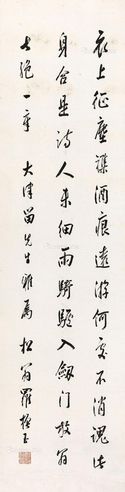 衣上征塵襍酒痕遠游何處不消魂此
身合是詩人未細雨騎驢入劒門放翁
七絕一章 大津留先生雅屬 松翁羅振玉